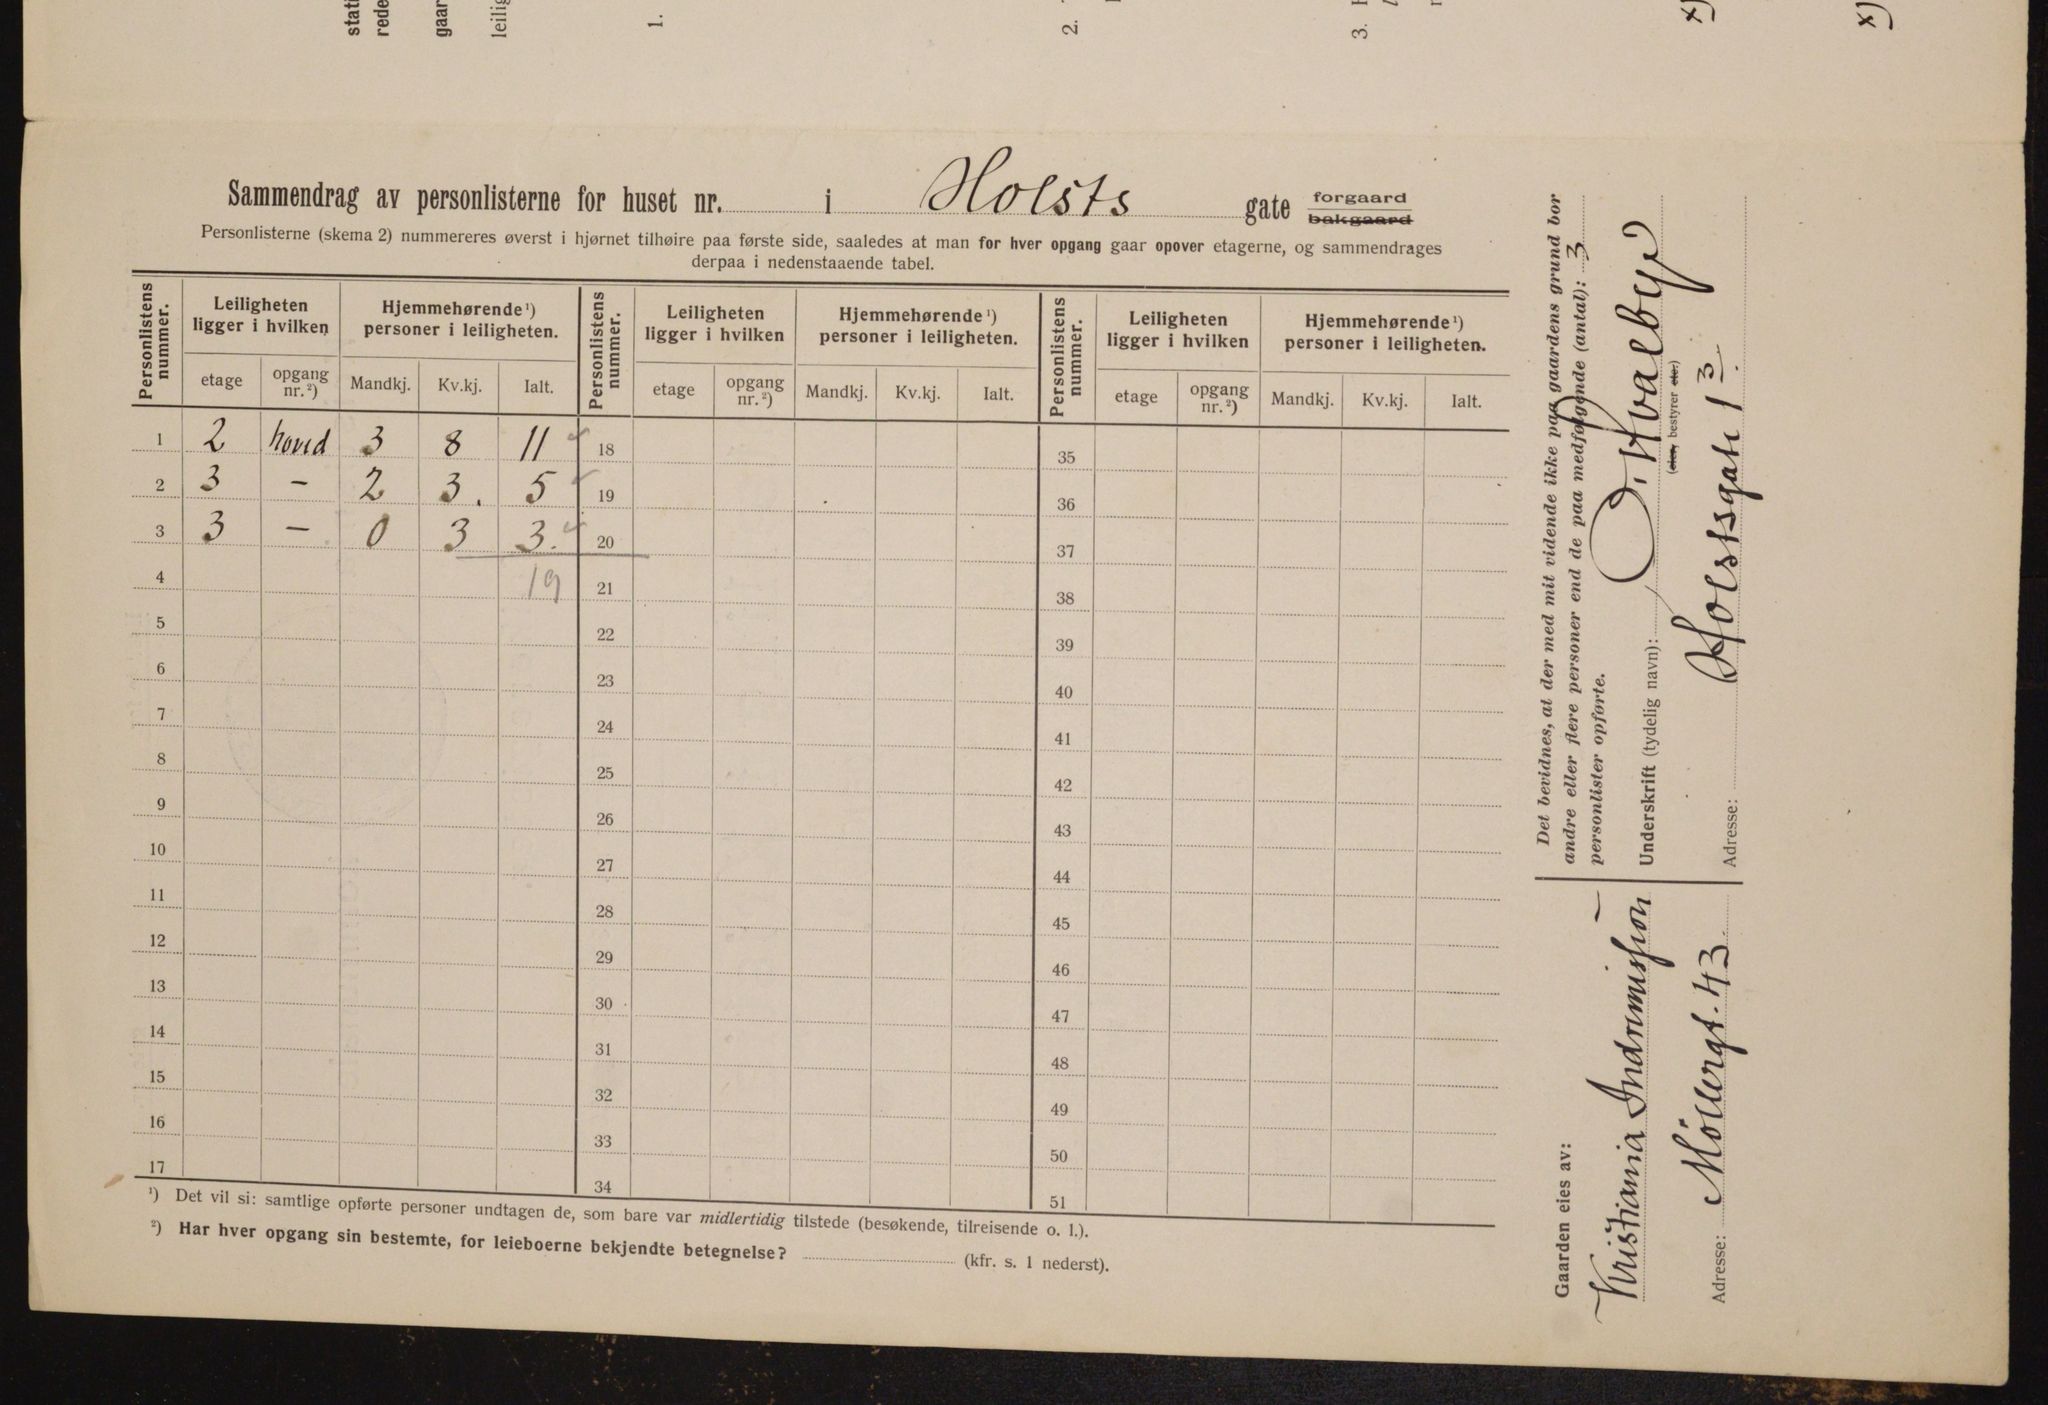 stati
rede
gaar
leilig
1.
2.
3.
x)
x)
Sammendrag av personlisterne for huset nr. i Holsts gate forgaard
bakgaard
Personlisterne (skema 2) nummereres øverst i hjørnet tilhøire paa første side, saaledes at man for hver opgang gaar opover etagerne, og sammendrages
derpaa i nedenstaaende tabel.
Personlistens nummer. Leiligheten ligger i hvilken Hjemmehørende ¹) personer i leiligheten. Personlistens nummer. Leiligheten ligger i hvilken Hjemmehørende ¹) personer i leiligheten. Personlistens nummer. Leiligheten ligger i hvilken Hjemmehørende ¹) personer i leiligheten.
etage opgang nr. ²) Mandkj. Kv.kj. Ialt. etage opgang nr. ²) Mandkj. Kv.kj. Ialt. etage opgang nr. ²) Mandkj. Kv.kj. Ialt.
1 2 hoved 3 8 11 18 35
2 3 – 2 3. 5 19 36
3 3 – 0 3 3. 20 37
4 19 21 38
5 22 39
6 23 40
7 24 41
8 25 42
9 26 43
10 27 44
11 28 45
12 29 46
13 30 47
14 31 48
15 32 49
16 33 50
17 34 51
¹) Det vil si: samtlige opførte personer undtagen de, som bare var midlertidig tilstede (besøkende, tilreisende o. l.).
²) Har hver opgang sin bestemte, for leieboerne bekjendte betegnelse? (kfr. s. 1 nederst).
Det bevidnes, at der med mit vidende ikke paa gaardens grund bor
andre eller flere personer end de paa medfølgende (antal): 3
personlister opførte.
Underskrift (tydelig navn): O. Kvalbye
(eier, bestyrer etc.)
Adresse: Holstsgate 13.
Gaarden eies av:
Kristiania Indremission
Adresse: Möllergt. 43